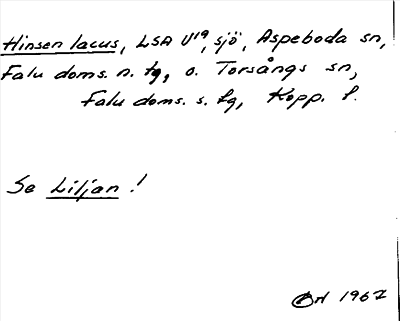 Hinsen lacus, LSA U¹⁹, sjö, Aspeboda sn,
Falu doms. n. tg, o. Torsångs sn,
Falu doms. s. tg, Kopp. l.
Se Liljan!
1967